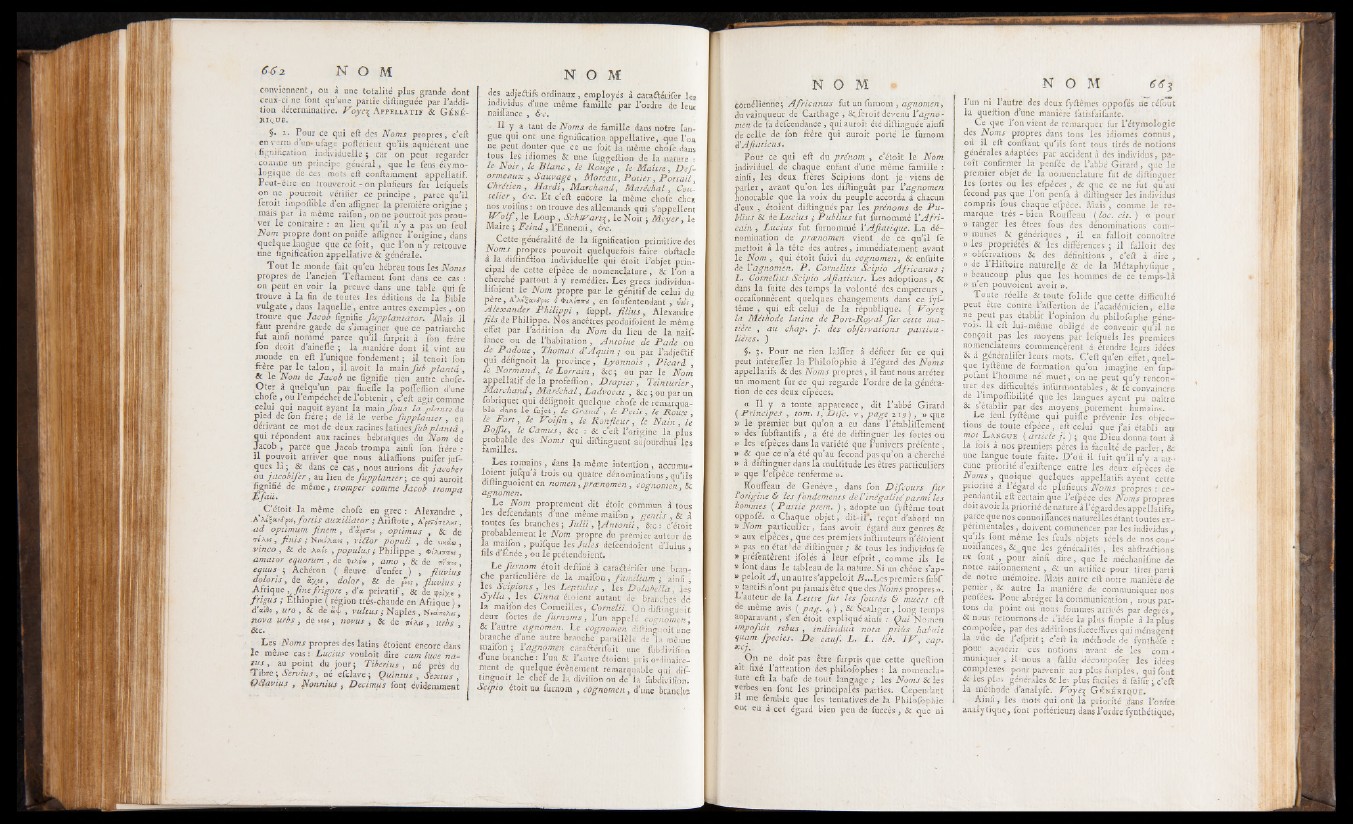 662 N O M
conviennent, ou à une totalité plus grande dont
ceux-ci ne ſont qu'une partie diſtinguée par l'addi-
tion déterminative. Voyez APPELLATIF & GÉNÉ-
RIQUE.
§. 2. Pour ce qui eſt des Noms propres, c'eſt
en vertu d'un uſage poſtérieur qu'ils aquièrent une
ſignification individuelle ; car on peut regarder
comme un principe général, que le ſens étymo-
logique de ces mots eſt conſtamment appellatif.
Peut-être en trouveroit-on pluſieurs ſur leſquels
on ne pourroit vérifier ce principe, parce qu'il
ſeroit impoſſible d'en aſſigner la première origine ;
mais par la même raiſon, on ne pourroit pas prou-
ver le contraire : au lieu qu'il n'y a pas un ſeul
Nom propre dont on puiſſe aſſigner l'origine, dans
quelque langue que ce ſoit, que l'on n'y retrouve
une ſignification appellative & générale.
Tout le monde ſait qu'en hébreu tous les Noms
propres de l'ancien Teſtament ſont dans ce cas :
on peut en voir la preuve dans une table qui ſe
trouve à la fin de toutes les éditions de la Bible
vulgate, dans laquelle, entre autres exemples, on
trouve que Jacob ſignifie ſupplantator. Mais il
faut prendre garde de s'imaginer que ce patriarche
fut ainſi nommé parce qu'il ſurprit à ſon frère
ſon droit d'aineſſe ; la manière dont il vint au
monde en eſt l'unique fondement ; il tenoit ſon
frère par le talon, il avoit la main ſub plantâ,
& le Nom de Jacob ne ſignifie rien autre choſe.
Oter à quelqu'un par fineſſe la poſſeſſion d'une
choſe, ou l'empêcher de l'obtenir, c'eſt agir comme
celui qui naquit ayant la main ſous la plante du
pied de ſon frère ; de là le verbe ſupplanter, en
dérivant ce mot de deux racines latines ſub plantâ,
qui répondent aux racines hébraïques du Nom de
Jacob, parce que Jacob trompa ainſi ſon frère :
il pouvoit arriver que nous allaſſions puiſer juſ-
ques là ; & dans ce cas, nous aurions dit jacober
ou jacobiſer, au lieu de ſupplanter ; ce qui auroit
ſignifié de même, tromper comme Jacob trompa
Éſaü.
C'étoit la même choſe en grec : Alexandre,
Ἀλέξανδρος, fortis auxiliator ; Ariſtote, Ἀριστοτέλης,
ad optimum finem, d'ἄριστος, optimus, & de
τέλος, finis ; Νικόλαος, victor populi, de νικάω,
vinco, & de λαὸς, populus ; Philippe, Φίλιππος,
amator equorum, de φιλέω, amo, & de ἵππος,
equus ; Achéron (fleuve d'enfer), fluvius
doloris, de ἄχος, dolor, & de ῥόος, fluvius ;
Afrique, ſine frigore, d'α privatif, & de φρίκη,
frigus ; Éthiopie (région très-chaude en Afrique),
d'αἴθω, uro, & de ὤψ, vultus ; Naples, Νεάπολις,
nova urbs, de νέος, novus, & de πόλις, urbs,
&c.
Les Noms propres des latins étoient encore dans
le même cas : Lucius vouloit dire cum luce na-
tus, au point du jour ; Tiberius, né près du
Tibre ; Servius, né eſclave ; Quintus, Sextus,
Octavius, Nonnius, Decimus ſont évidemment
N O M
des adjectifs ordinaux, employés à caractériſer les
individus d'une même famille par l'ordre de leur
naiſſance, &c.
Il y a tant de Noms de famille dans notre lan-
gue qui ont une ſignification appellative, que l'on
ne peut douter que ce ne ſoit la même choſe dans
tous les idiomes & une ſuggeſtion de la nature :
le Noir, le Blanc, le Rouge, le Maître, Deſ-
ormeaux, Sauvage, Moreau, Potier, Portail,
Chrétien, Hardi, Marchand, Maréchal, Cou-
telier, &c. Et c'eſt encore la même choſe chez
nos voiſins : on trouve des allemands qui s'appellent
Wolf, le Loup, Schwartz, le Noir ; Meyer, le
Maire ; Feind, l'Ennemi, &c.
Cette généralité de la ſignification primitive des
Noms propres pouvoit quelquefois faire obſtacle
à la diſtinction individuelle qui étoit l'objet prin-
cipal de cette eſpèce de nomenclature, & l'on a
cherché partout à y remédier. Les grecs individua-
liſoient le Nom propre par le génitif de celui du
père, Ἀλέξανδρος ὁ Φιλίππου, en ſouſentendant, υἱὸς,
Alexander Philippi, ſuppl. filius, Alexandre
fils de Philippe. Nos ancêtres produiſoient le même
effet par l'addition du Nom du lieu de la naiſ-
ſance ou de l'habitation, Antoine de Pade ou
de Padoue, Thomas d'Aquin ; ou par l'adjectif
qui déſignoit la province, Lyonnois, Picard,
le Normand, le Lorrain, &c; ou par le Nom
appellatif de la profeſſion, Drapier, Teinturier,
Marchand, Maréchal, Ladvocat, &c ; ou par un
ſobriquet qui déſignoit quelque choſe de remarqua-
ble dans le ſujet, le Grand, le Petit, le Roux,
le Fort, le Voiſin, le Ronfleur, le Nain, le
Boſſu, le Camus, &c : & c'eſt l'origine la plus
probable des Noms qui diſtinguent aujourdhui les
familles.
Les romains, dans la même intention, accumu-
loient juſqu'à trois ou quatre dénominations, qu'ils
diſtinguoient en nomen, prænomen, cognomen, &
agnomen.
Le Nom proprement dit étoit commun à tous
les deſcendants d'une même maiſon, gentis, & à
toutes ſes branches ; Julii, Antonii, &c : c'étoit
probablement le Nom propre du premier auteur de
la maiſon, puiſque les Jules deſcendoient d'Iulus,
fils d'Énée, ou le prétendoient.
Le ſurnom étoit deſtiné à caractériſer une bran-
che particulière de la maiſon, familiam ; ainſi,
les Scipions, les Lentulus, les Dolabella, les
Sylla, les Cinna étoient autant de branches de
la maiſon des Corneilles, Cornelii. On diſtinguoit
deux ſortes de ſurnoms, l'un appelé cognomen,
& l'autre agnomen. Le cognomen diſtinguoit une
branche d'une autre branche parallèle de la même
maiſon ; l'agnomen caractériſoit une ſubdiviſion
d'une branche : l'un & l'autre étoient pris ordinaire-
ment de quelque évènement remarquable qui diſ-
tinguoit le chef de la diviſion ou de la ſubdiviſion.
Scipio étoit au ſurnom, cognomen, d'une branche
N O M
cornélienne; Africanus fut un ſurnom, agnomen,
du vainqueur de Carthage, & ſeroit devenu l'agno-
men de ſa deſcendance, qui auroit été diſtinguée ainſi
de celle de ſon frère qui auroit porté le ſurnom
d'Aſiaticus.
Pour ce qui eſt du prénom, c'étoit le Nom
individuel de chaque enfant d'une même famille :
ainſi, les deux frères Scipions dont je viens de
parler, avant qu'on les diſtinguât par l'agnomen
honorable que la voix du peuple accorda à chacun
d'eux, étoient diſtingués par les prénoms de Pu-
blius & de Lucius ; Publius fut ſurnommé l'Afri-
cain, Lucius fut ſurnommé l'Aſiatique. La dé-
nomination de prænomen vient de ce qu'il ſe
mettoit à la tête des autres, immédiatement avant
le Nom, qui étoit ſuivi du cognomen, & enſuite
de l'agnomen. P. Cornelius Scipio Africanus ;
L. Cornelius Scipio Aſiaticus. Les adoptions, &
dans la ſuite des temps la volonté des empereurs,
occaſionnèrent quelques changements dans ce ſyſ-
tême, qui eſt celui de la république. (Voyez
la Méthode latine de Port-Royal ſur cette ma-
tière, au chap. j. des obſervations particu-
lières.)
§. 3. Pour ne rien laiſſer à déſirer ſur ce qui
peut intéreſſer la Philoſophie à l'égard des Noms
appellatifs & des Noms propres, il faut nous arrêter
un moment ſur ce qui regarde l'ordre de la généra-
tion de ces deux eſpèces.
« Il y a toute apparence, dit l'abbé Girard
(Principes, tom. I, Diſc. v, page 219), » que
» le premier but qu'on a eu dans l'établiſſement
» des ſubſtantifs, a été de diſtinguer les ſortes ou
» les eſpèces dans la variété que l'univers préſente,
» & que ce n'a été qu'au ſecond pas qu'on a cherché
» à diſtinguer dans la multitude les êtres particuliers
» que l'eſpèce renferme ».
Rouſſeau de Genève, dans ſon Diſcours ſur
l'origine & les fondements de l'inégalité parmi les
hommes (Partie prem.), adopte un ſyſtême tout
oppoſé. « Chaque objet, dit-il, reçut d'abord un
» Nom particulier, ſans avoir égard aux genres &
» aux eſpèces, que ces premiers inſtituteurs n'étoient
» pas en état de diſtinguer ; & tous les individus ſe
» préſentèrent iſolés à leur eſprit, comme ils le
» ſont dans le tableau de la nature. Si un chêne s'ap-
» peloit A, un autre s'appeloit B... Les premiers ſubſ-
» tantifs n'ont pu jamais être que des Noms propres ».
L'auteur de la Lettre ſur les ſourds & muets eſt
de même avis (pag. 4), & Scaliger, long temps
auparavant, s'en étoit expliqué ainſi : Qui Nomen
impoſuit rebus, individua nota priùs habuit
quam ſpecies. De cauſ. L. L. lib. IV, cap.
xcj.
On ne doit pas être ſurpris que cette queſtion
ait fixé l'attention des philoſophes : la nomencla-
ture eſt la baſe de tout langage ; les Noms & les
verbes en ſont les principales parties. Cependant
il me ſemble que les tentatives de la Philoſophie
ont eu à cet égard bien peu de ſuccès, & que ni
N O M 663
l'un ni l'autre des deux ſyſtêmes oppoſés ne réſout
la queſtion d'une manière ſatisfaiſante.
Ce que l'on vient de remarquer ſur l'étymologie
des Noms propres dans tous les idiomes connus,
où il eſt conſtant qu'ils ſont tous tirés de notions
générales adaptées par accident à des individus, pa-
roît confirmer la penſée de l'abbé Girard, que le
premier objet de la nomenclature fut de diſtinguer
les ſortes ou les eſpèces, & que ce ne fut qu'au
ſecond pas que l'on penſa à diſtinguer les individus
compris ſous chaque eſpèce. Mais, comme le re-
marque très-bien Rouſſeau (loc. cit.) « pour
» ranger les êtres ſous des dénominations com-
» munes & génériques, il en falloit connoître
» les propriétés & les différences ; il falloit des
» obſervations & des définitions, c'eſt à dire,
» de l'Hiſtoire naturelle & de la Métaphyſique,
» beaucoup plus que les hommes de ce temps-là
» n'en pouvoient avoir ».
Toute réelle & toute ſolide que cette difficulté
peut être contre l'aſſertion de l'académicien, elle
ne peut pas établir l'opinion du philoſophe gene-
vois. Il eſt lui-même obligé de convenir qu'il ne
conçoit pas les moyens par leſquels les premiers
nomenclateurs commencèrent à étendre leurs idées
& à généraliſer leurs mots. C'eſt qu'en effet, quel-
que ſyſtême de formation qu'on imagine en ſup-
poſant l'homme né muet, on ne peut qu'y rencon-
trer des difficultés inſurmontables, & ſe convaincre
de l'impoſſibilité que les langues ayent pu naître
& s'établir par des moyens purement humains.
Le ſeul ſyſtême qui puiſſe prévenir les objec-
tions de toute eſpèce, eſt celui que j'ai établi au
mot LANGUE (article j.) ; que Dieu donna tout à
la fois à nos premiers pères la faculté de parler, &
une langue toute faite. D'où il ſuit qu'il n'y a au-
cune priorité d'exiſtence entre les deux eſpèces de
Noms, quoique quelques appellatifs ayent cette
priorité à l'égard de pluſieurs Noms propres : ce-
pendant il eſt certain que l'eſpèce des Noms propres
doit avoir la priorité de nature à l'égard des appellatifs,
parce que nos connoiſſances naturelles étant toutes ex-
périmentales, doivent commencer par les individus,
qu'ils ſont même les ſeuls objets réels de nos con-
noiſſances, & que les généralités, les abſtractions
ne ſont, pour ainſi dire, que le méchaniſme de
notre raiſonnement, & un artifice pour tirer parti
de notre mémoire. Mais autre eſt notre manière de
penſer, & autre la manière de communiquer nos
penſées. Pour abréger la communication, nous par-
tons du point où nous ſommes arrivés par degrés,
& nous retournons de l'idée la plus ſimple à la plus
compoſée, par des additions ſucceſſives qui ménagent
la vûe de l'eſprit ; c'eſt la méthode de ſynthèſe :
pour acquérir ces notions avant de les com-
muniquer, il nous a fallu décompoſer les idées
complexes pour parvenir aux plus ſimples, qui ſont
& les plus générales & les plus faciles à ſaiſir ; c'eſt
la méthode d'analyſe. Voyez GÉNÉRIQUE.
Ainſi, les mots qui ont la priorité dans l'ordre
analytique, ſont poſtérieurs dans l'ordre ſynthétique;